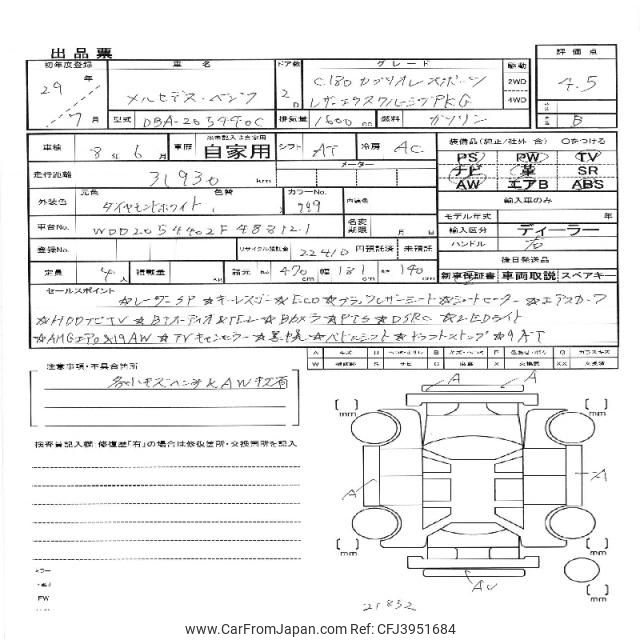 出品票
初年度登録 車名 ドア数 グレード 駆動 評価点
29年 7月
メルセデス・ベンツ 2D
C.180 カブリオレスポーツ
レザーエクスクルーシブPKG
2WD
4WD
4.5
B
型式 DBA-205440C 排気量 1600cc 燃料 ガソリン
車検 8年6月 車歴 自家用 シフト AT 冷房 AC
装備品(純正/社外 含) ○をつける
PS PW TV
ナビ 革 SR
AW エアB ABS
走行距離 31930 km メーター
輸入車のみ
外装色 元色 色替 カラーNo. 内装色
ダイヤモンドホワイト 799
モデル年式 年
車台No. WDD2054402F488121 名変期限 月 日
輸入区分 ディーラー
登録No. リサイクル預託金 22410 円預託済 未預託
ハンドル 右
後日発送品
定員 4人 積載量 kg 諸元 No 長 470cm 幅 181cm 高 140cm
新車保証書 車両取説 スペアキー
セールスポイント
☆レーダーSP ☆キーレスゴー ☆ECO ☆ブラックレザーシート ☆シートヒーター ☆エアスカーフ
☆HDDナビTV ☆BTオーディオ&TEL ☆Bカメラ ☆PTS ☆DSRC ☆LEDライト
☆AMGエアロ&19AW ☆TVキャンセラー ☆黒幌 ☆パドルシフト ☆ドラフトストップ ☆9AT
注意事項・不具合箇所
AWキズ有
検査員記入欄:修復歴「有」の場合は修復箇所・交換箇所を記入
A
A
mm
mm
A
A
mm
mm
AU
ミラー
FW
21832
www.CarFromJapan.com | CFJ3951684